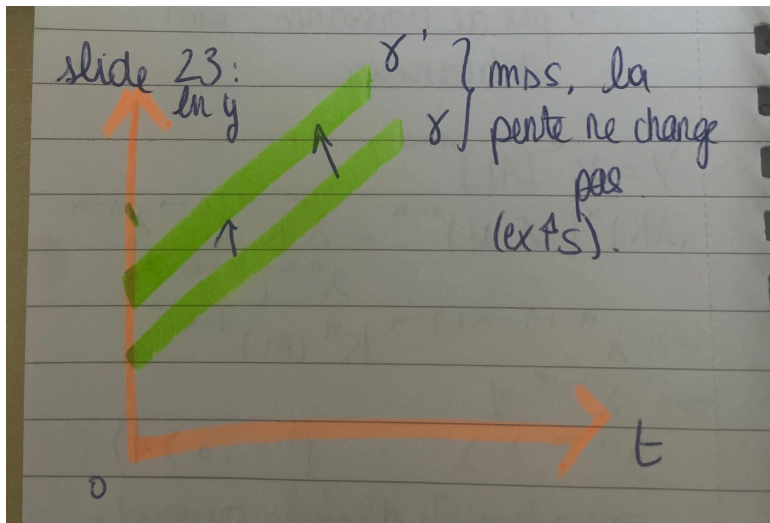 slide 23:
ln y
γ'
γ
MDS, la
pente ne change
pas
(ex ↑ s).
t
0